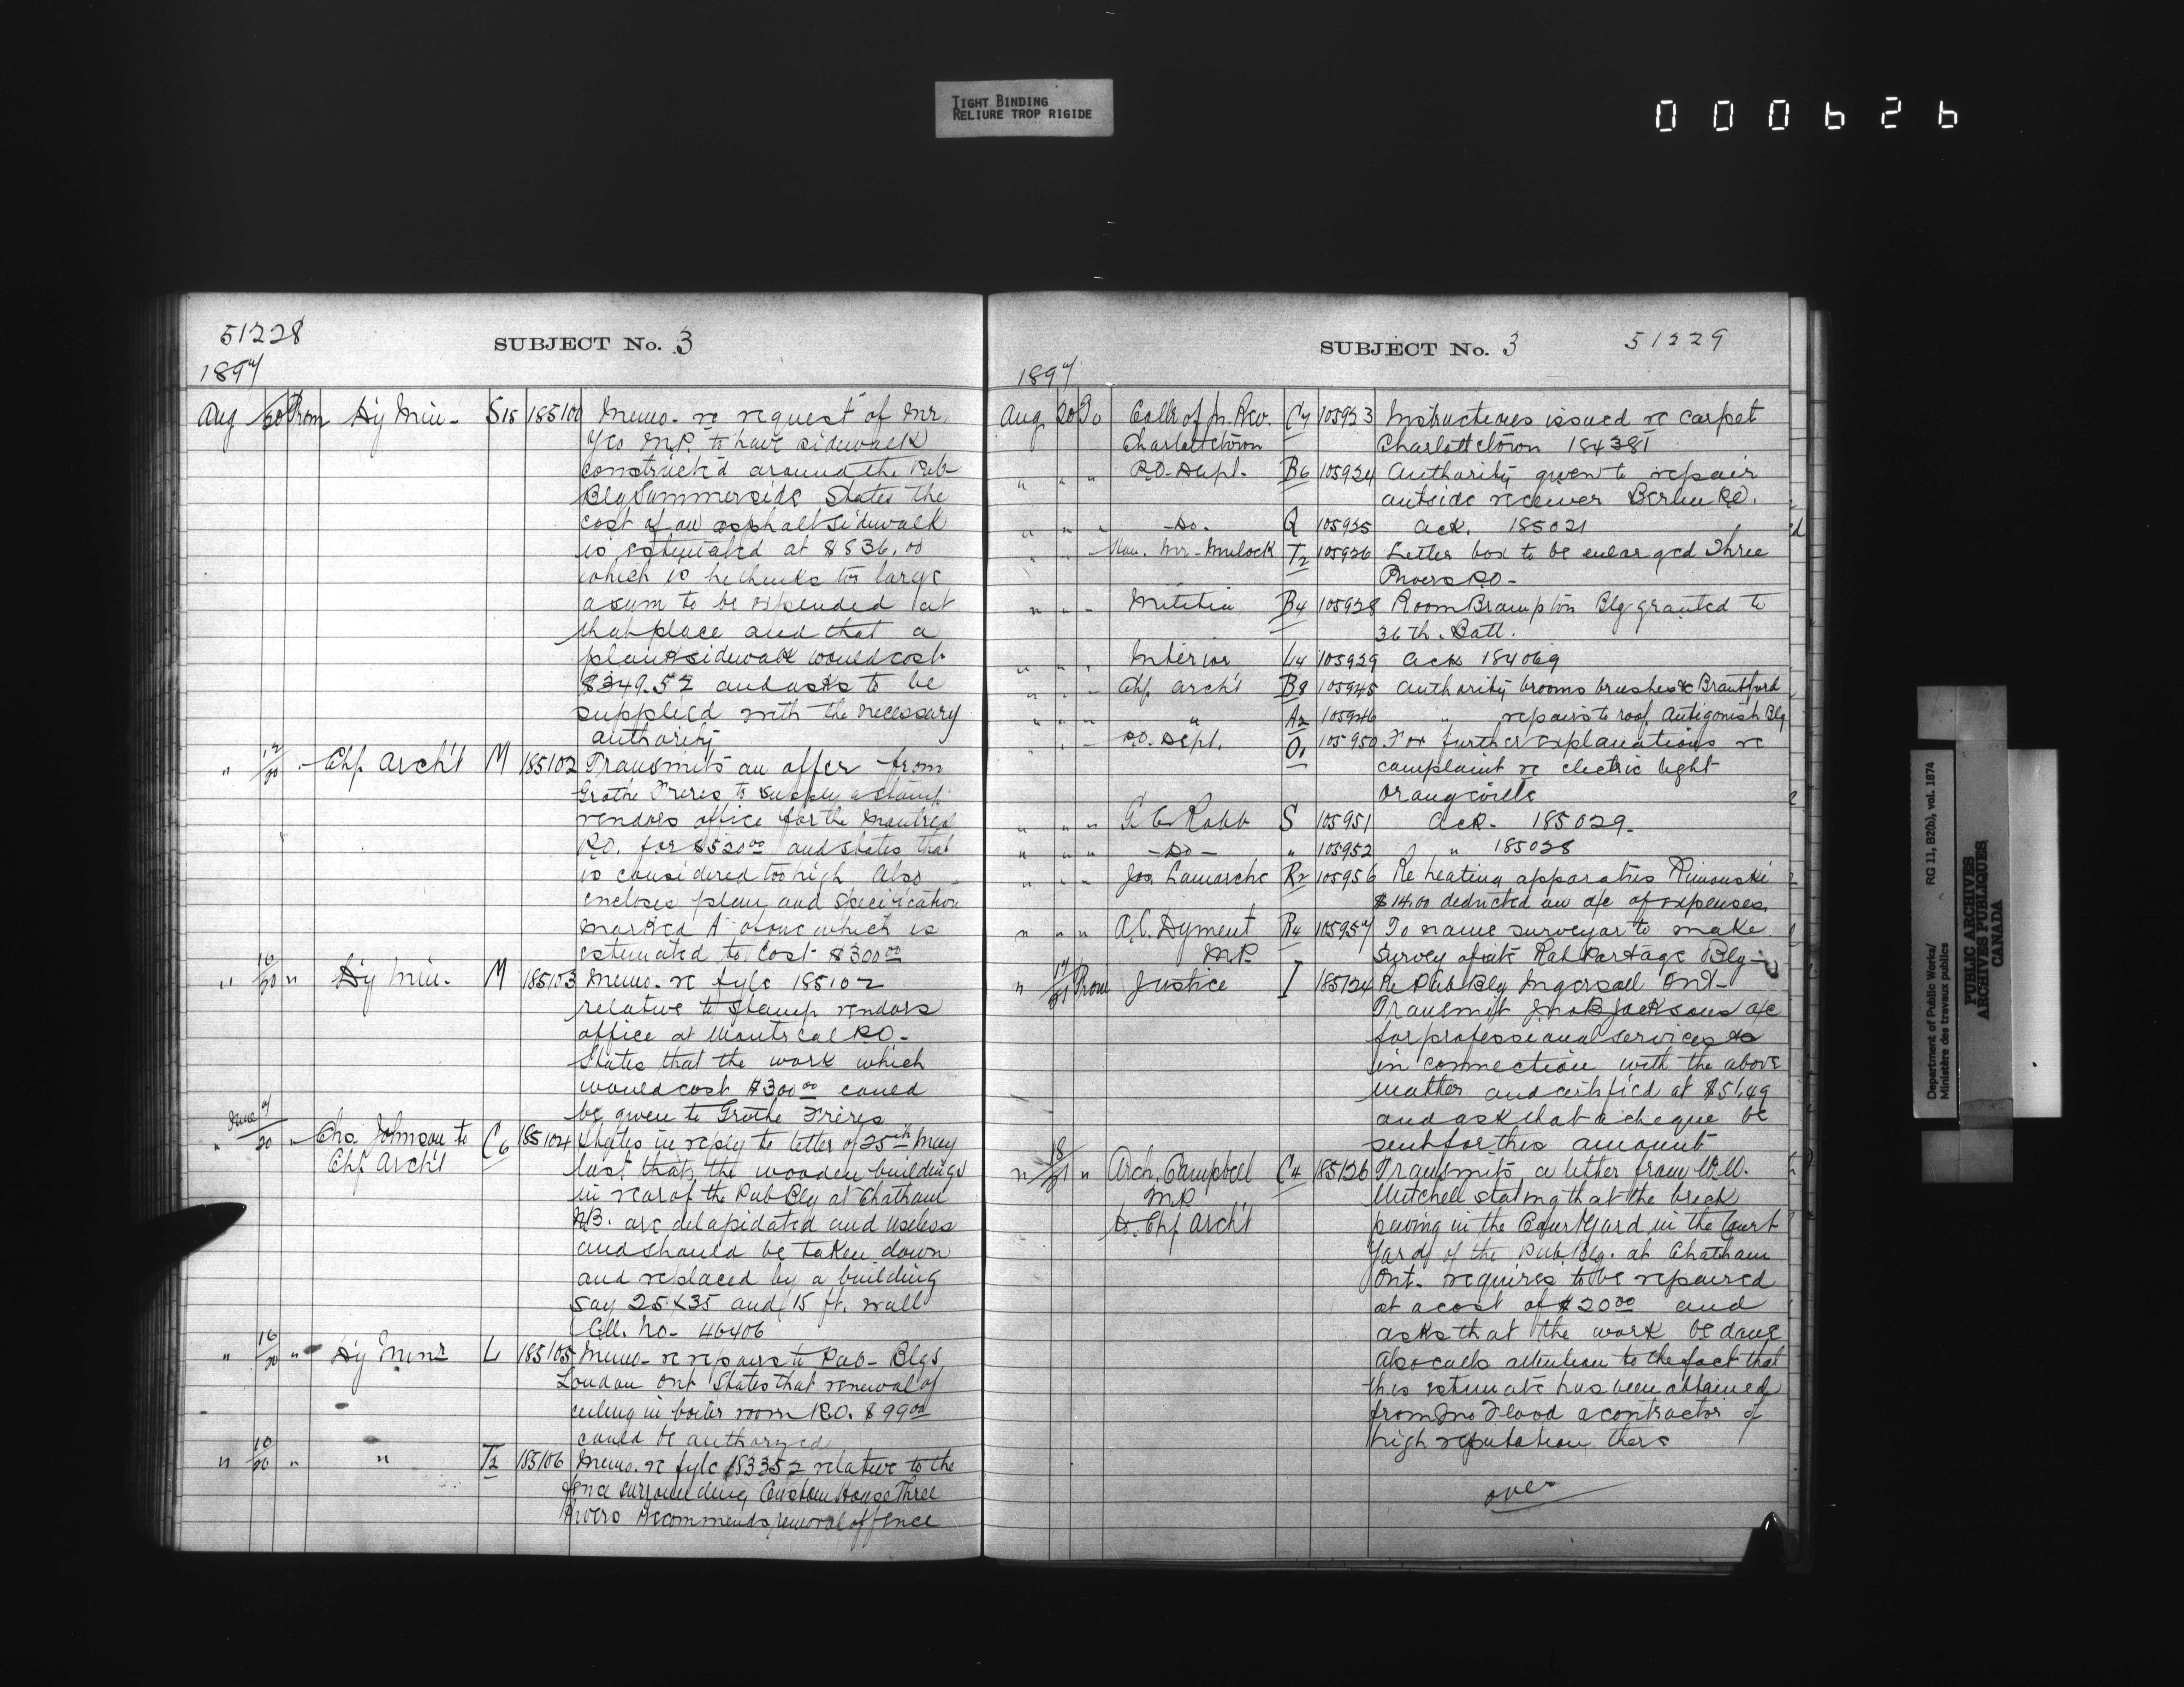 TIGHT BINDING
RELIURE TROP RIGIDE
000626
51228
SUBJECT No. 3
1897
Aug 20 From Dy Min - S15 185100 Memo. re request of Mr.
Yeo M.P. to have sidewalk
constructed around the Pub
Blg Summerside States the
cost of an asphalt sidewalk
is estimated at $836.00
which is he thinks too large
a sum to be expended at
that place and that a
plank sidewalk would cost
$349.52 and asks to be
supplied with the necessary
authority
" 12/20 " Chf. Arch't M 185102 Transmits an offer from
Grothe Freres to supply a stamp
vendors office for the Montreal
P.O. for $520.00 and states that
is considered too high Also
encloses plan and specification
marked A of one which is
estimated to cost $300.00
" 16/20 " Dy Min. M 185103 Memo. re fyle 185102
relative to stamp vendors
office at Montreal P.O.
States that the work which
would cost $300.00 could
be given to Grothe Frères
" June 9/20 " Chs. Johnson to C6 185104 States in reply to letter of 25th May
Chf Arch't last that, the wooden buildings
in rear of the Pub Blg at Chatham
N.B. are delapidated and useless
and should be taken down
and replaced by a building
say 25 x 35 and 15 ft. wall
Coll. No- 46406
" 16/20 " Dy Minr L 185105 Memo - re repairs to Pub - Blgs
London Ont States that renewal of
ceiling in boiler room P.O. $99.00
could be authoryed
" 16/20 " " T2 185106 Memo. re fyle 183352 relative to the
fence surrounding Custom House Three
Rivers recommends removal of fence
SUBJECT No. 3
51229
1897
Aug 20 To Collr of In. Rev. C7 105923 Instructions issued re carpet
Charlottetown Charlottetown 184381
" " " P.O. Dept. B6 105924 Authority given to repair
outside receiver Berlin P.O.
" " " - Do. Q 105925 ack. 185021
" " Hon. Mr - Mulock T2 105926 Letter box to be enlarged Three
Rivers P.O -
" " - Militia B4 105928 Room Brampton Blg granted to
36th. Batt.
" " " Interior L4 105929 ack 184069
" " - Chf. Arch't B8 105945 authority brooms brushes &c Brantford
" " " " A2 105946 " repairs to roof Antigonish Blg
" " - P.O. Dept. O1 105950 For further explanations re
complaint re electric light
Orangeville
" " " G. C. Robb S 105951 ack - 185029 -
" " " - Do - " 105952 " 185028
" " " Jos Lamarche R2 105956 Re heating apparatus Rimouski
$14.00 deducted on a/c of expenses.
" " " A.C. Dyment R4 105957 To name surveyor to make
M.P. survey of site Rat Portage Blg -
" 17/21 From Justice I 185124 Re Pub Blg Ingersoll Ont -
Transmit Jno B Jacksons a/c
for professional services
in connection with the above
matter and certified at $51.49
and ask that a cheque be
sent for this amount
" 18/21 " Arch. Campbell C4 185126 Transmits a letter from W.W.
M.P. Mitchell stating that the brick
to. Chf Arch't paving in the Court Yard in the Court
Yard of the Pub Blg. at Chatham
Ont. requires to be repaired
at a cost of $20.00 and
asks that the work be done
Also calls attention to the fact that
this estimate has been obtained
from Jno Flood a contractor of
high reputation there
over
Department of Public Works/ RG 11, B2(b), vol. 1874
Ministère des travaux publics
PUBLIC ARCHIVES
ARCHIVES PUBLIQUES
CANADA